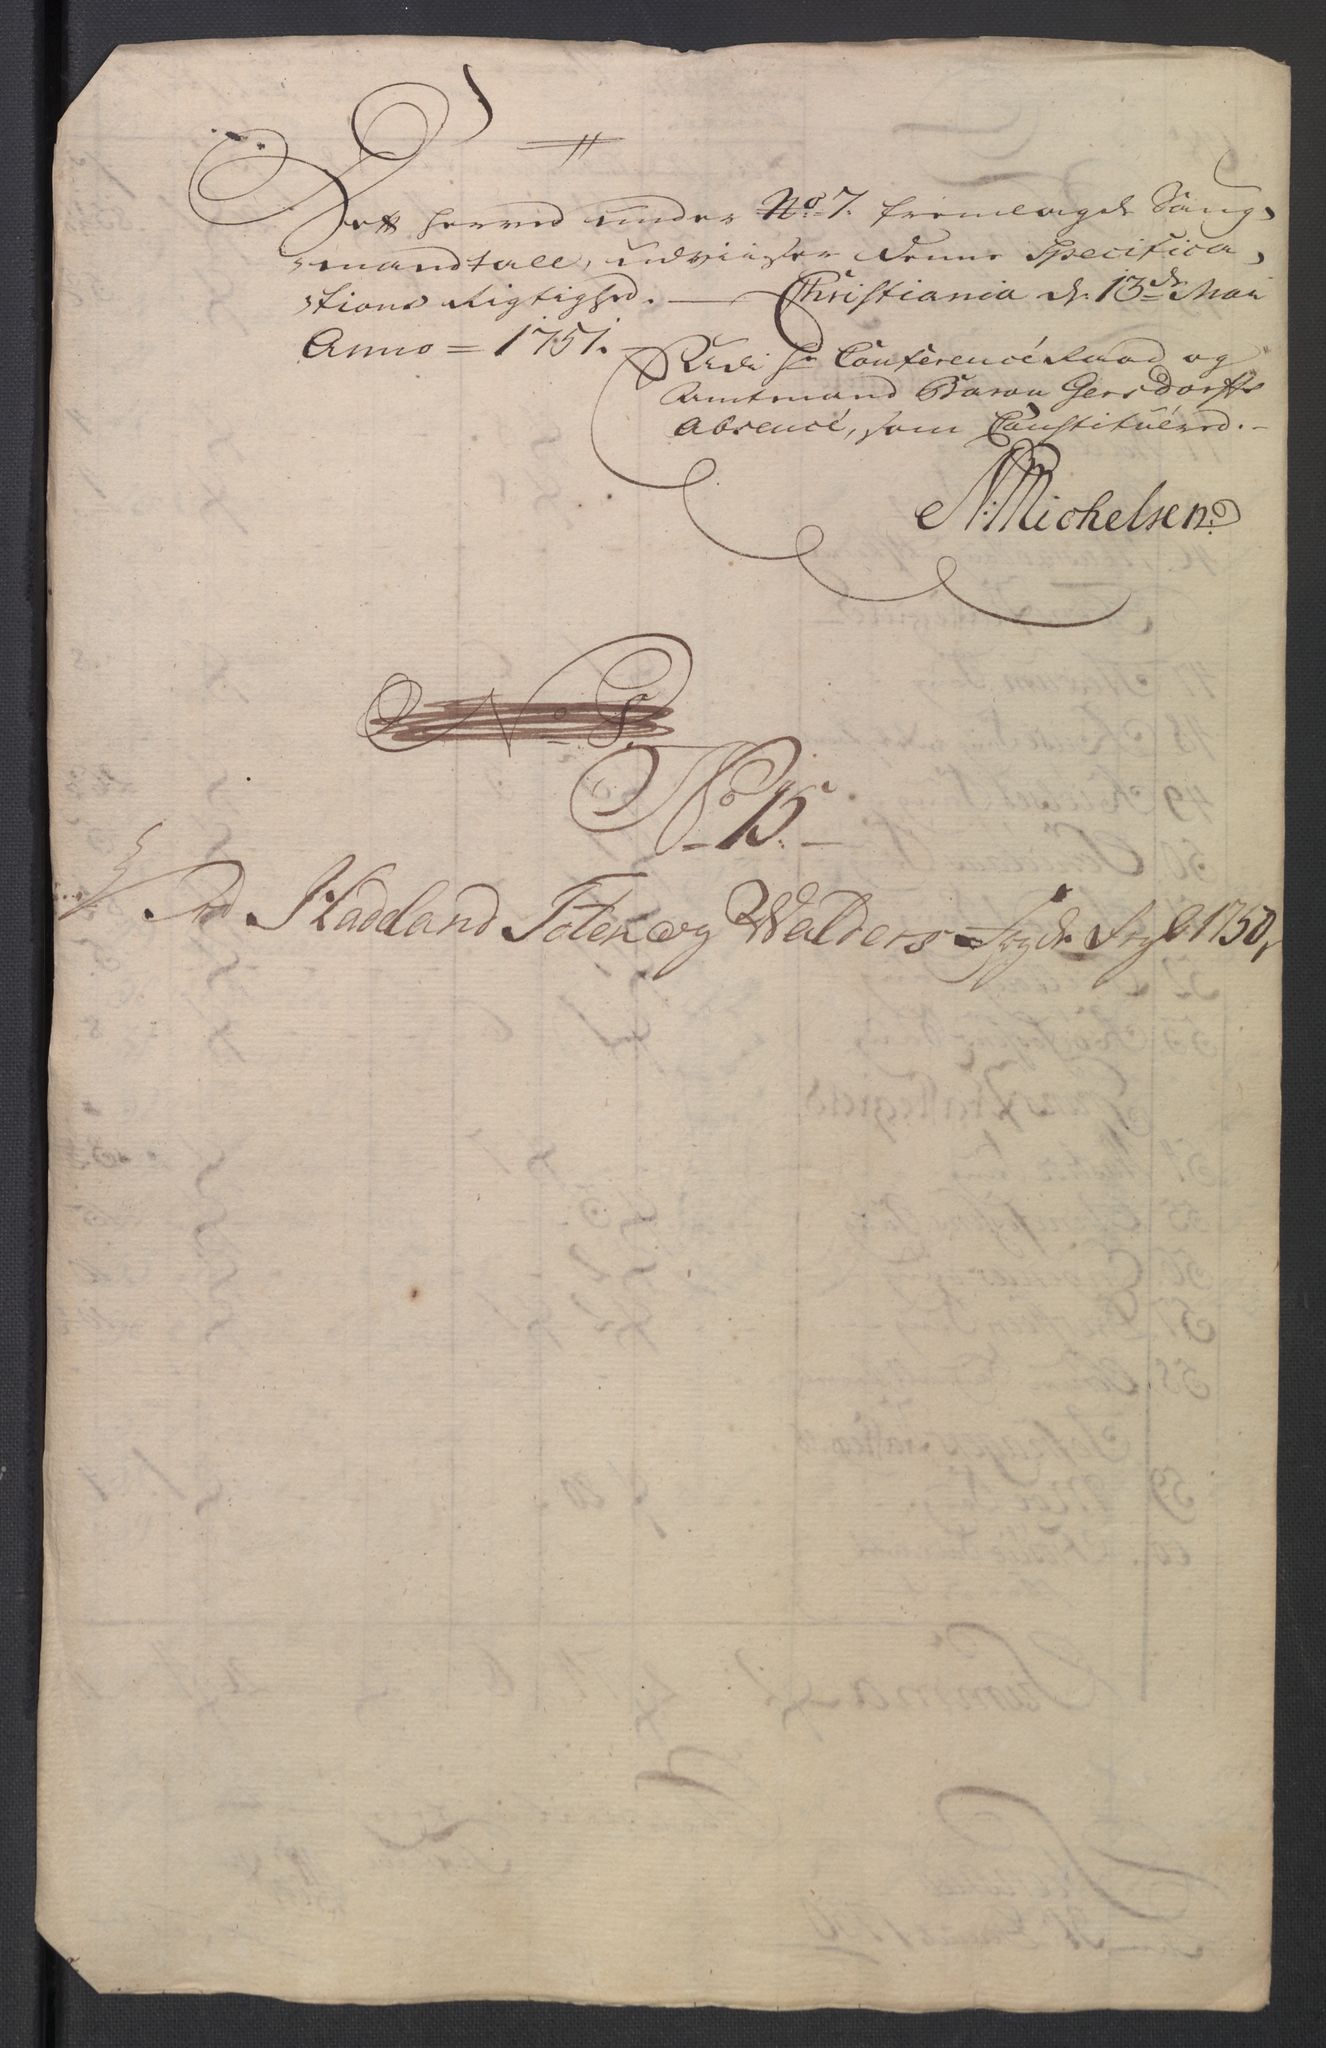 Dett herved under No 7. fremlagde Saug,
mandtall, udviiser denne Specifica,
tions Rigtighed. — Christiania d. 13de Maii
Anno = 1751. –
Udi Hr Conference Raad og
Amtmand Baron Gersdorffs
Absence, som Constituered. –
N: Michelsen
No 8.
No 15.
Ad Hadeland Toten og Walders Fogd: Regsk 1750,